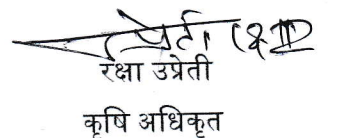 रक्षा उप्रेती
कृषि अधिकृत